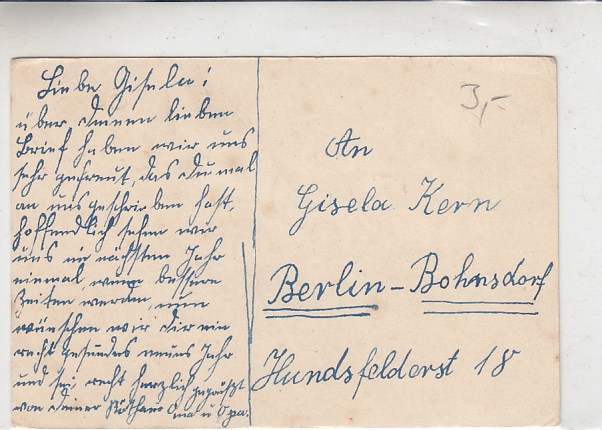 Liebe Gisela!
über Deinen lieben
Brief haben wir uns
sehr gefreut, das Du mal
an uns geschrieben hast,
hoffendlich sehen wir
uns im nächsten Jahr
einmal, wenn bessere
Zeiten werden, nun
wünschen wir Dir ein
recht gesundes neues Jahr
und sei recht herzlich gegrüßt
von Deiner Oma u Opa.
3,-
An
Gisela Kern
Berlin-Bohnsdorf
Hundsfelderst 18